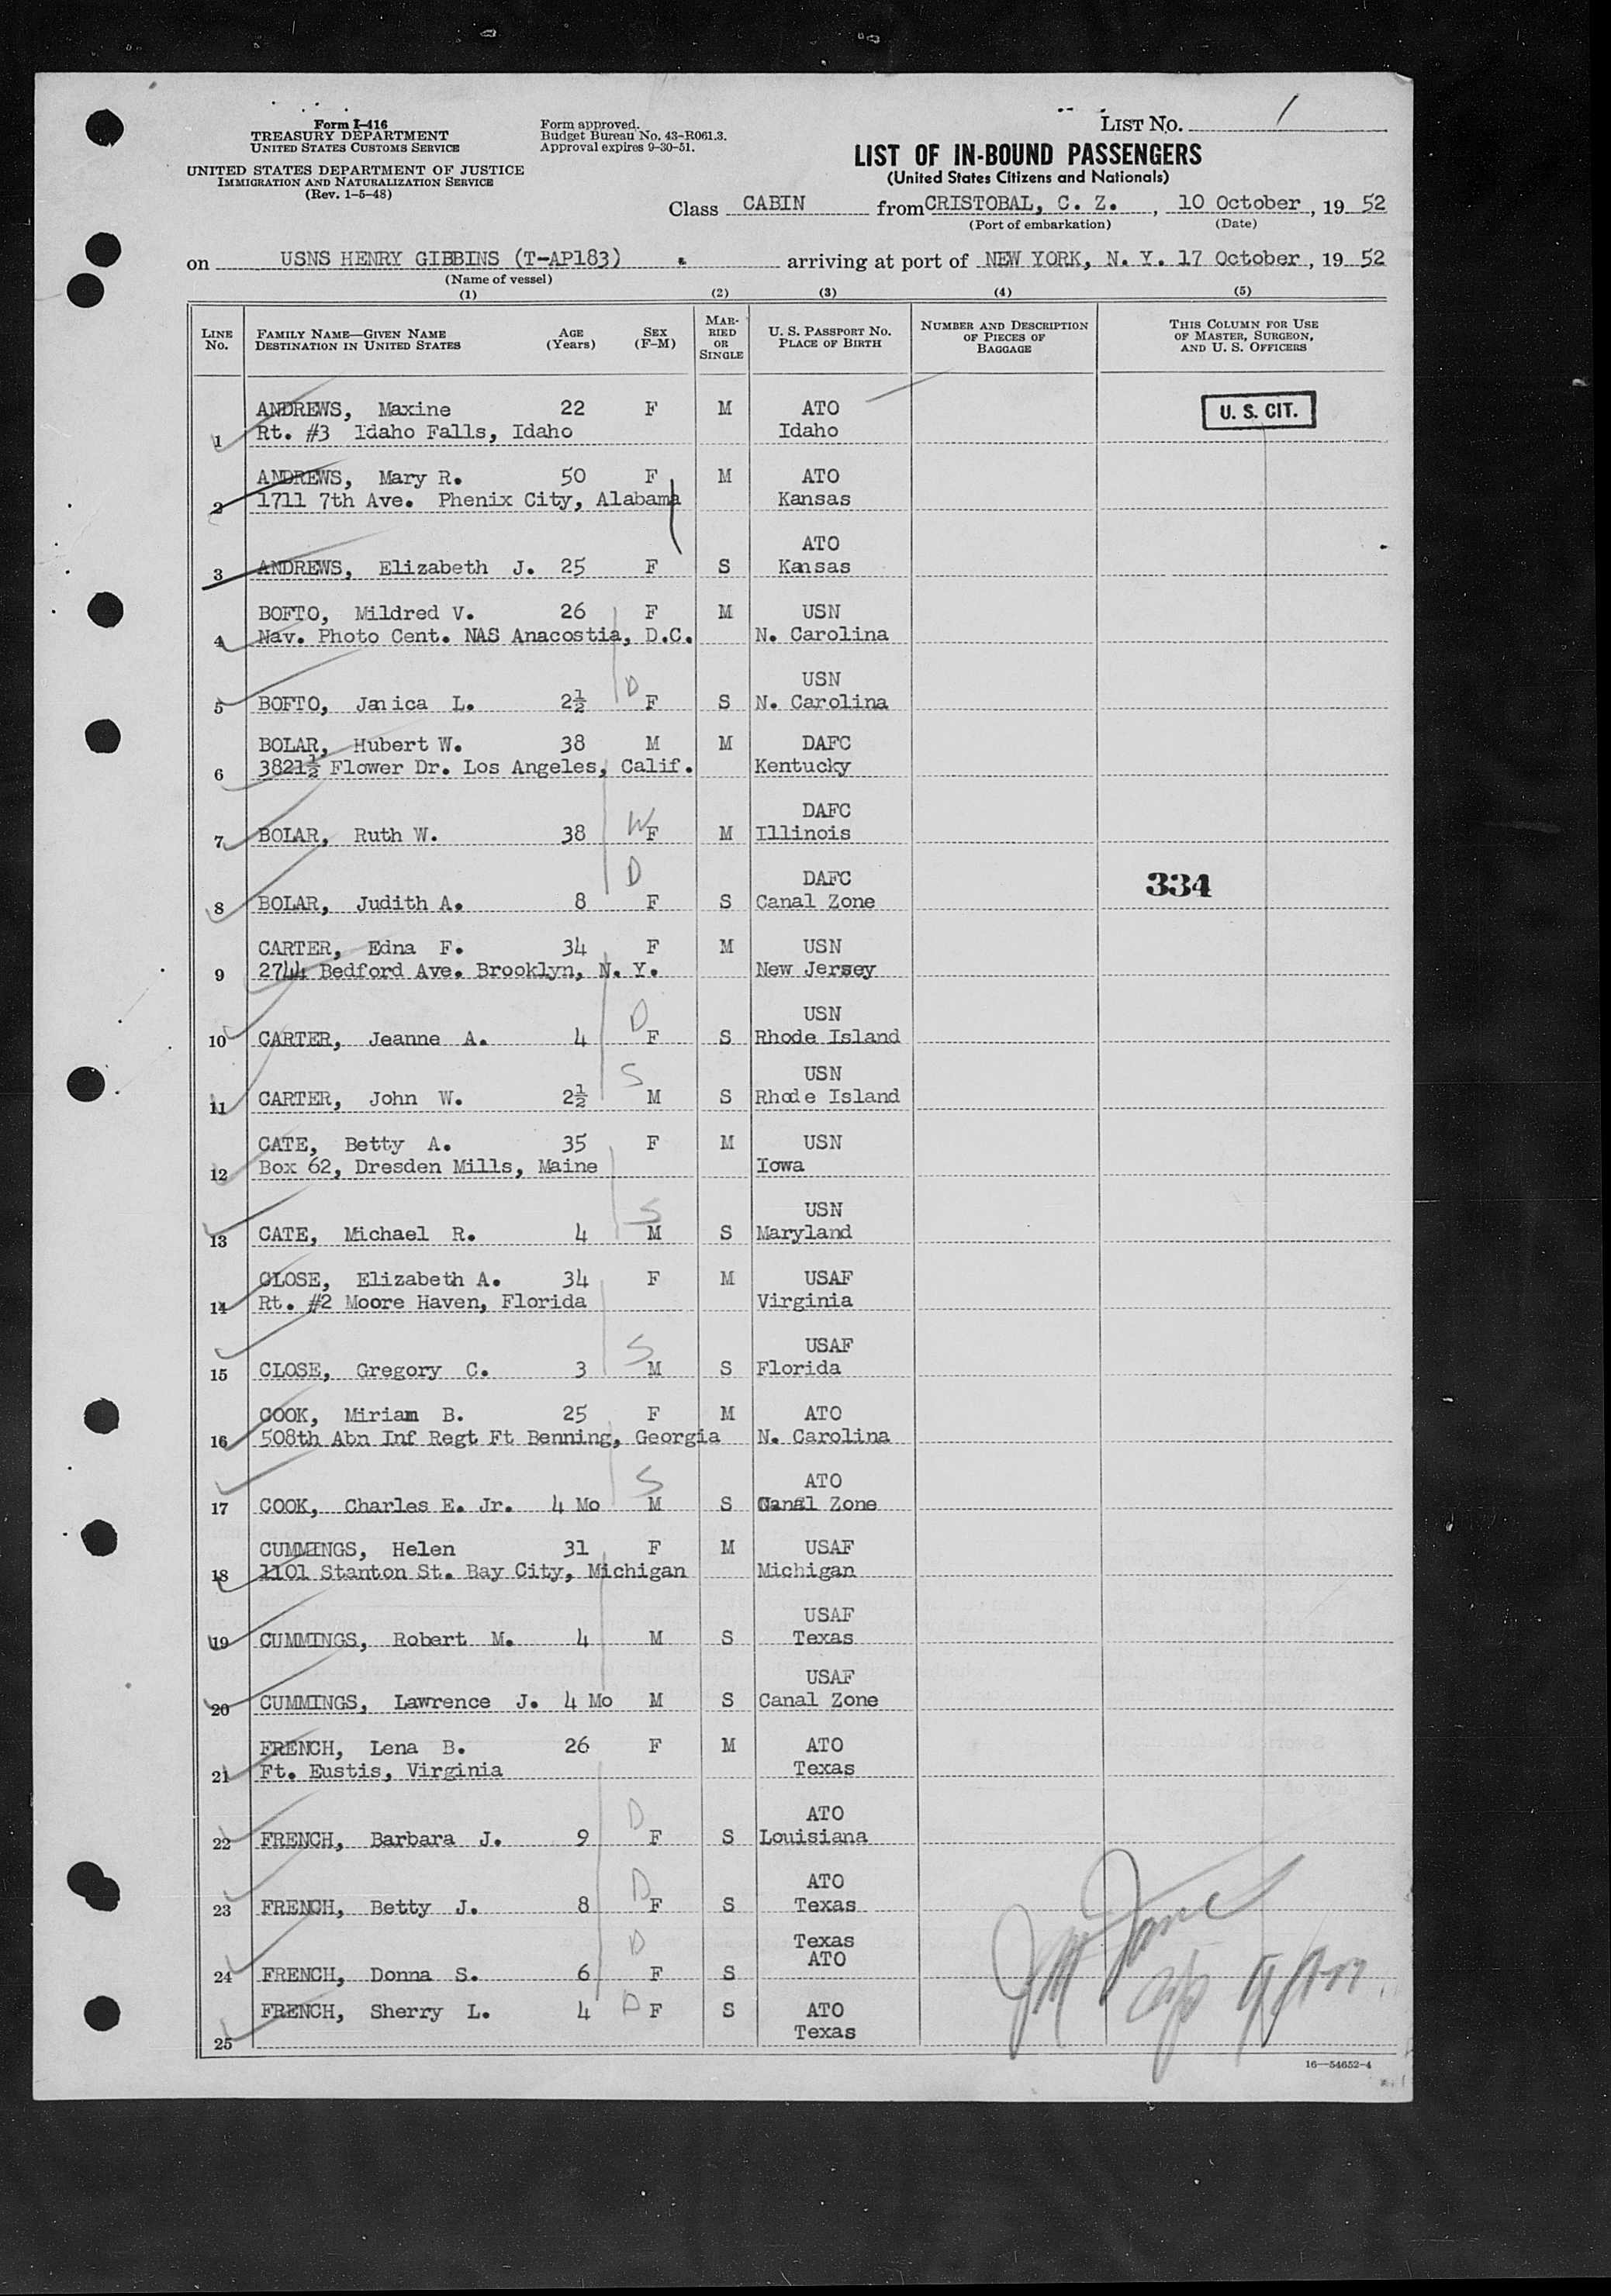 Form I-416
TREASURY DEPARTMENT
UNITED STATES CUSTOMS SERVICE
UNITED STATES DEPARTMENT OF JUSTICE
IMMIGRATION AND NATURALIZATION SERVICE
(Rev. 1-5-48)
Form approved.
Budget Bureau No. 43-R061.3.
Approval expires 9-30-51.
LIST NO. 1
LIST OF IN-BOUND PASSENGERS
(United States Citizens and Nationals)
Class CABIN from CRISTOBAL, C. Z. , 10 October , 19 52
(Port of embarkation) (Date)
on USNS HENRY GIBBINS (T-AP183) arriving at port of NEW YORK, N. Y. 17 October , 19 52
(Name of vessel)
(1) (2) (3) (4) (5)
LINE NO. FAMILY NAME—GIVEN NAME DESTINATION IN UNITED STATES AGE (Years) SEX (F-M) MARRIED OR SINGLE U. S. PASSPORT NO. PLACE OF BIRTH NUMBER AND DESCRIPTION OF PIECES OF BAGGAGE THIS COLUMN FOR USE OF MASTER, SURGEON, AND U. S. OFFICERS
ANDREWS, Maxine 22 F M ATO U. S. CIT.
1 Rt. #3 Idaho Falls, Idaho Idaho
ANDREWS, Mary R. 50 F M ATO
2 1711 7th Ave. Phenix City, Alabama Kansas
ATO
3 ANDREWS, Elizabeth J. 25 F S Kansas
BOFTO, Mildred V. 26 F M USN
4 Nav. Photo Cent. NAS Anacostia, D.C. N. Carolina
D USN
5 BOFTO, Janica L. 2½ F S N. Carolina
BOLAR, Hubert W. 38 M M DAFC
6 3821½ Flower Dr. Los Angeles, Calif. Kentucky
DAFC
7 BOLAR, Ruth W. 38 W F M Illinois
D DAFC
8 BOLAR, Judith A. 8 F S Canal Zone 334
CARTER, Edna F. 34 F M USN
9 2744 Bedford Ave. Brooklyn, N. Y. New Jersey
D USN
10 CARTER, Jeanne A. 4 F S Rhode Island
S USN
11 CARTER, John W. 2½ M S Rhode Island
CATE, Betty A. 35 F M USN
12 Box 62, Dresden Mills, Maine Iowa
S USN
13 CATE, Michael R. 4 M S Maryland
CLOSE, Elizabeth A. 34 F M USAF
14 Rt. #2 Moore Haven, Florida Virginia
S USAF
15 CLOSE, Gregory C. 3 M S Florida
COOK, Miriam B. 25 F M ATO
16 508th Abn Inf Regt Ft Benning, Georgia N. Carolina
S ATO
17 COOK, Charles E. Jr. 4 Mo M S Canal Zone
CUMMINGS, Helen 31 F M USAF
18 1101 Stanton St. Bay City, Michigan Michigan
USAF
19 CUMMINGS, Robert M. 4 M S Texas
USAF
20 CUMMINGS, Lawrence J. 4 Mo M S Canal Zone
FRENCH, Lena B. 26 F M ATO
21 Ft. Eustis, Virginia Texas
D ATO
22 FRENCH, Barbara J. 9 F S Louisiana
D ATO
23 FRENCH, Betty J. 8 F S Texas
D Texas
ATO
24 FRENCH, Donna S. 6 F S
FRENCH, Sherry L. 4 D F S ATO
25 Texas
16—54652-4